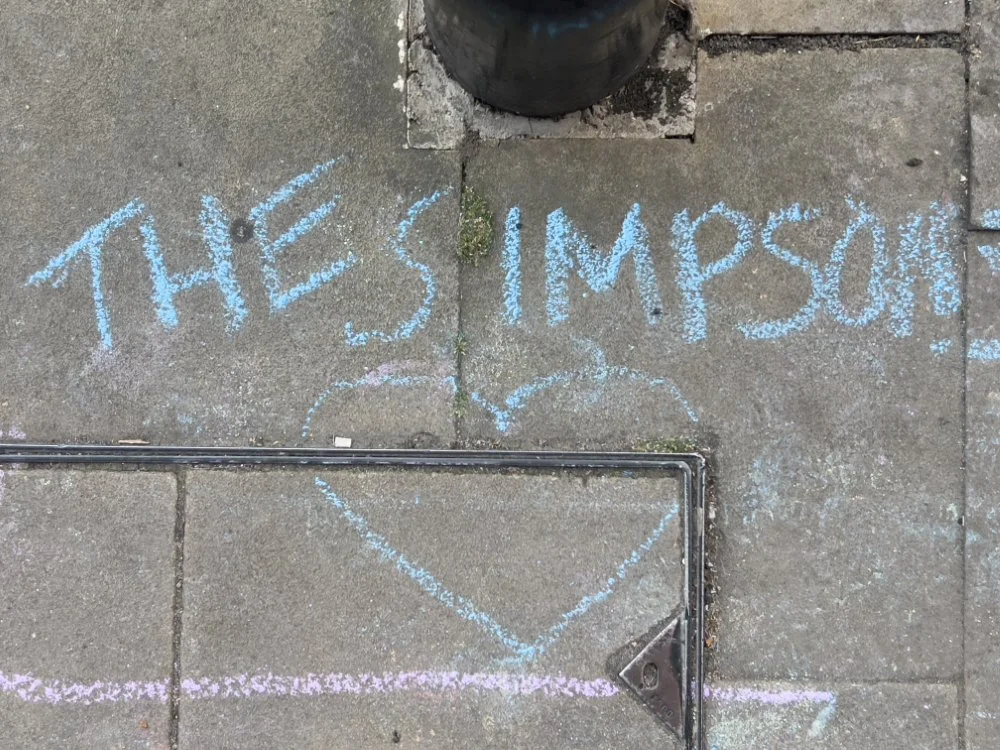 THE SIMPSONS